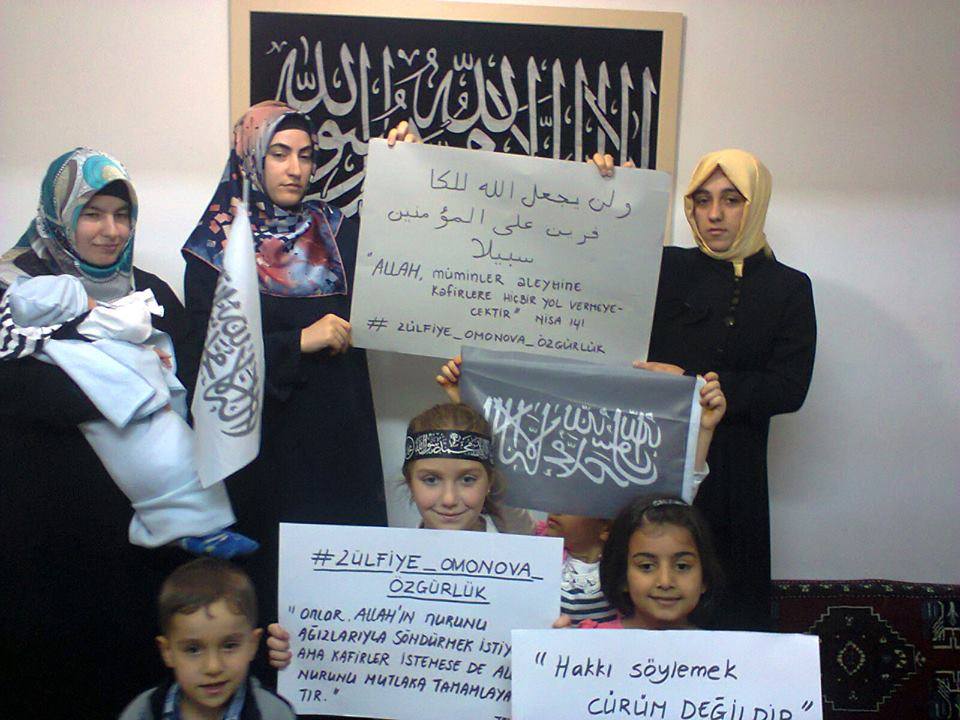 لا إله إلا الله
ولن يجعل الله للكا
فرين على المؤمنين
سبيلا
"ALLAH, MÜMİNLER ALEYHİNE
KAFİRLERE HİÇBİR YOL VERMEYE-
CEKTİR" NİSA 141
# ZÜLFİYE_OMONOVA_ÖZGÜRLÜK
لا إله إلا الله محمد رسول الله
محمد رسول الله
#ZÜLFİYE_OMONOVA_
ÖZGÜRLÜK
"ONLAR. ALLAH'IN NURUNU
AĞIZLARIYLA SÖNDÜRMEK İSTİY
AMA KAFİRLER İSTEMESE DE AL
NURUNU MUTLAKA TAMAMLAYA
TIR."
"Hakkı söylemek
CÜRÜM DEĞİLDİR"